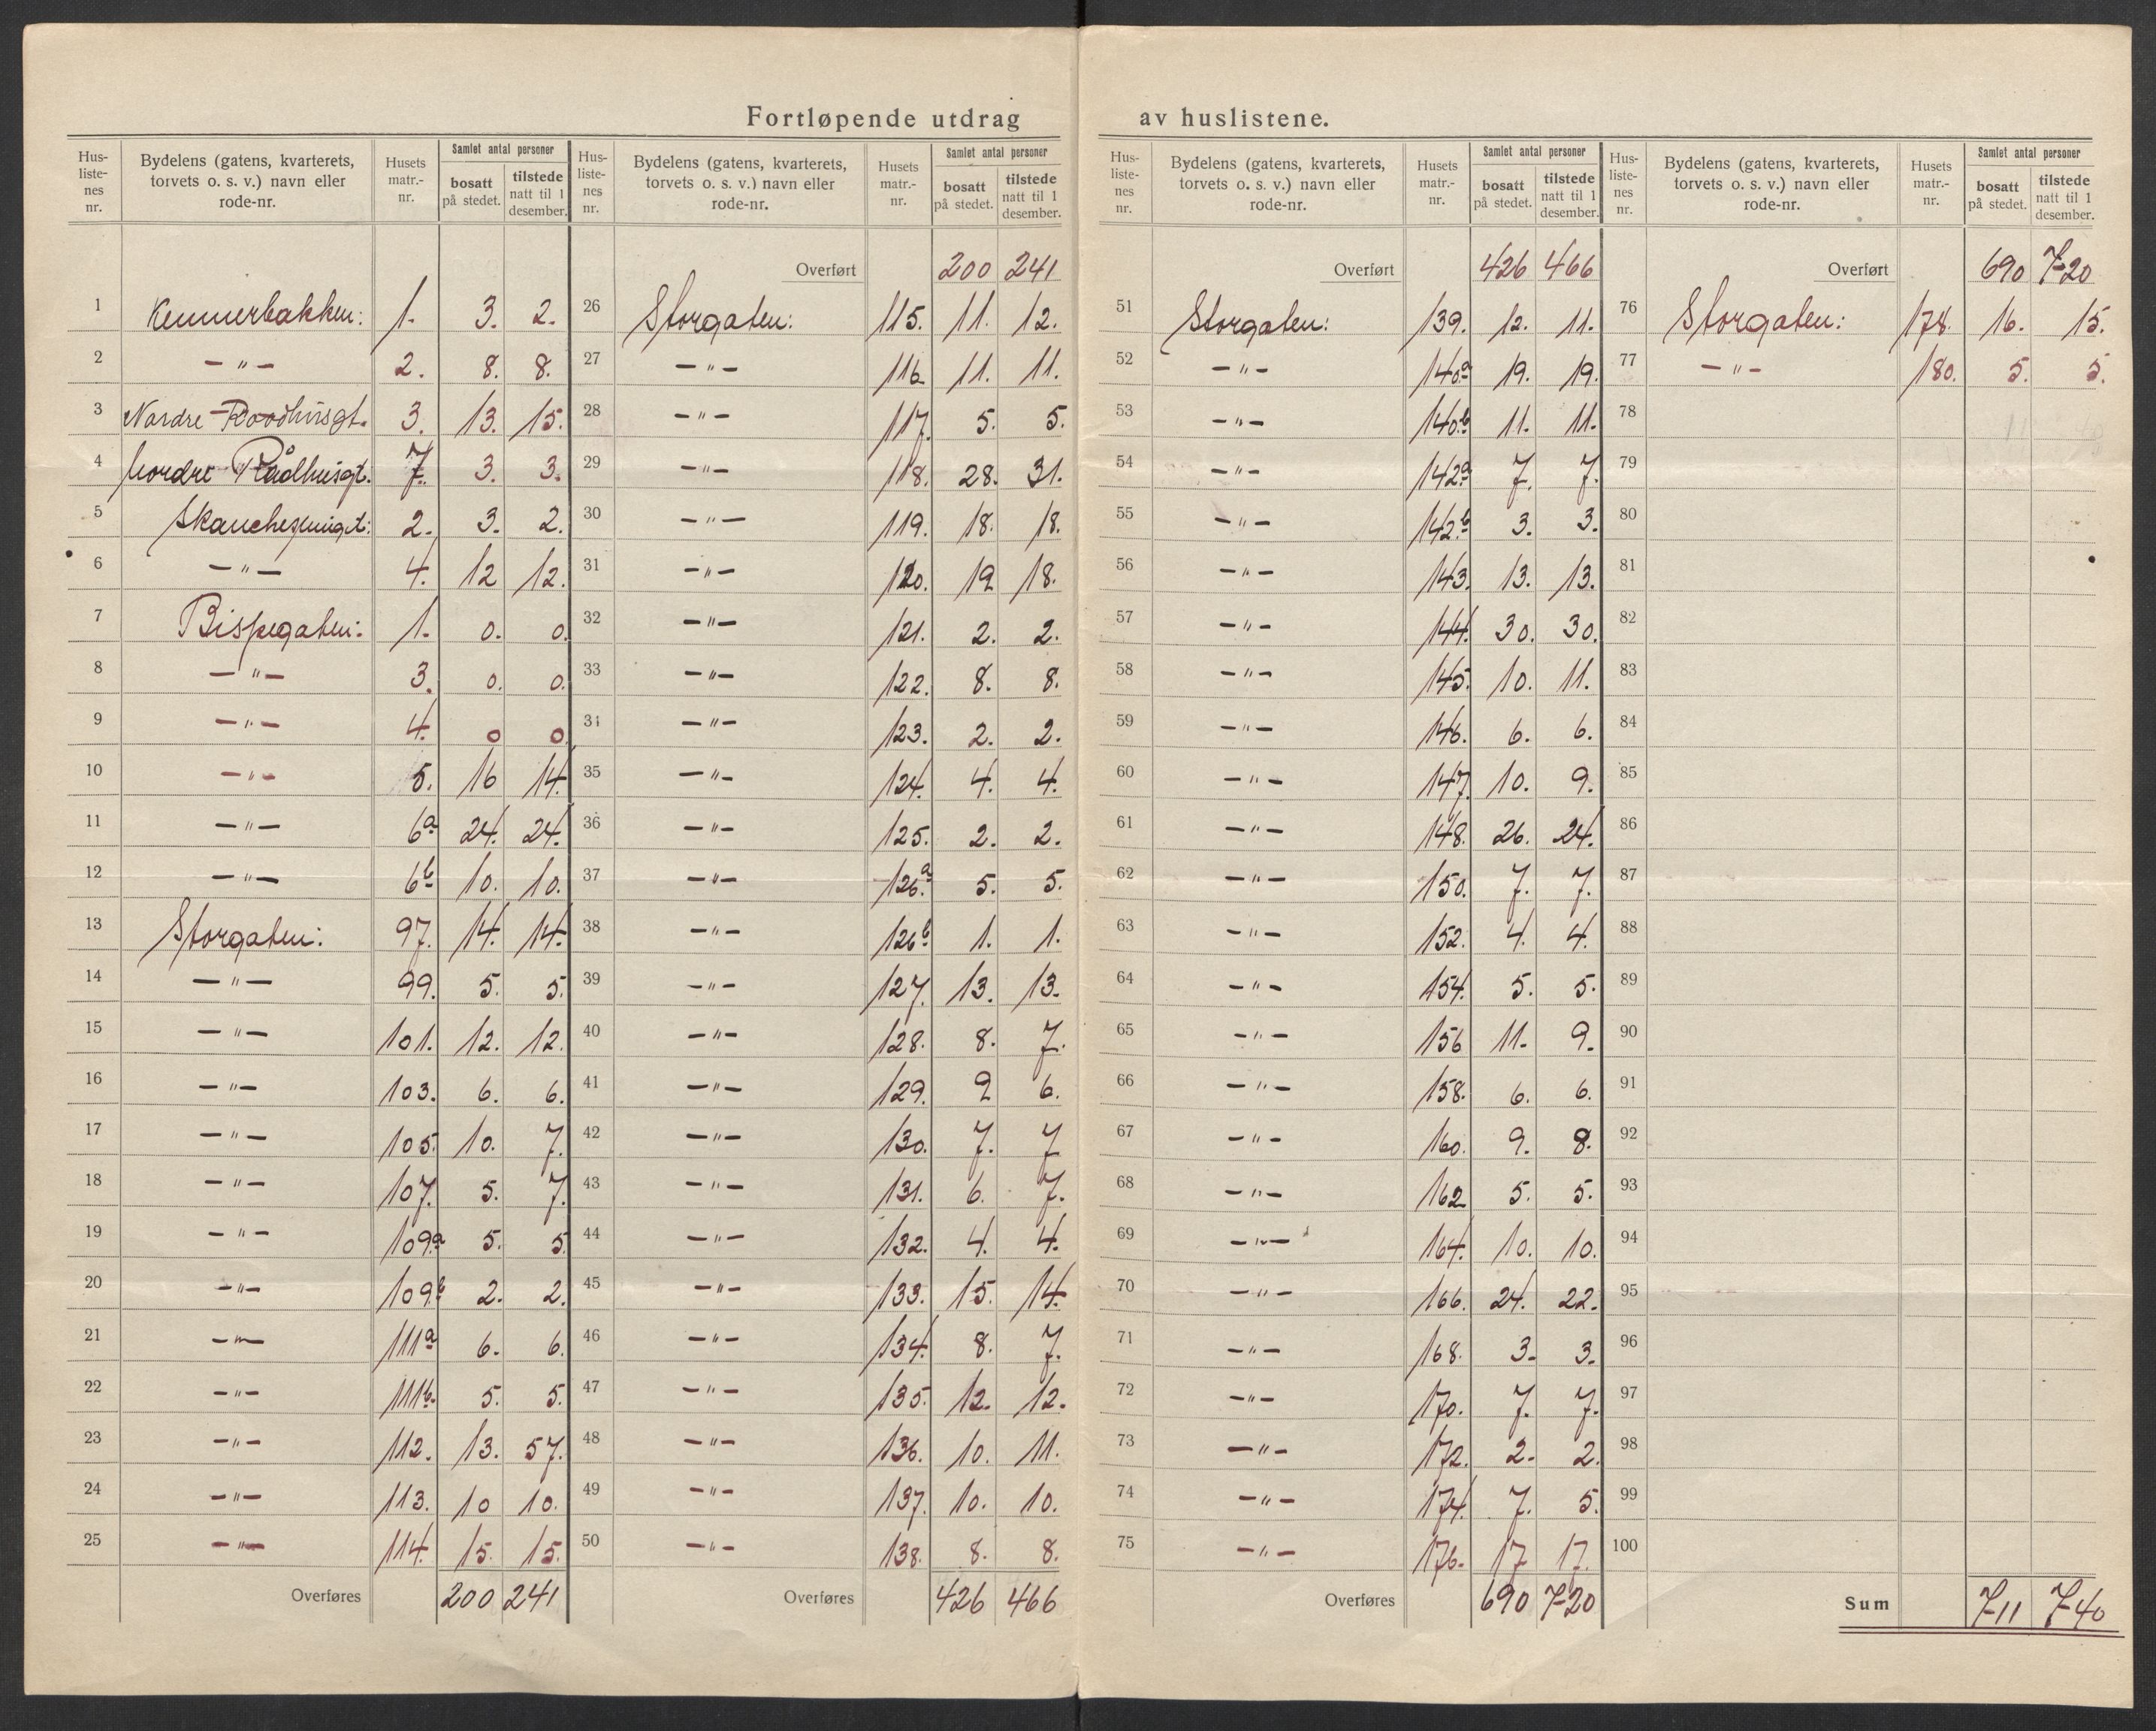 Fortløpende utdrag av huslistene.
Hus-listenes nr. | Bydelens (gatens, kvarterets, torvets o. s. v.) navn eller rode-nr. | Husets matr.-nr. | Samlet antal personer bosatt på stedet. | tilstede natt til 1 desember.
1 Kemnerbakken: 1. 3. 2.
2 — " — 2. 8. 8.
3 Nordre Raadhusgt. 3. 13. 15.
4 Nordre Rådhusgt. 7. 3. 3.
5 2. 3. 2.
6 — " — 4. 12 12.
7 Bispegaten: 1. 0. 0.
8 — " — 3. 0. 0.
9 — " — 4. 0 0.
10 — " — 5. 16 14.
11 — " — 6a 24. 24.
12 — " — 6b 10. 10.
13 Storgaten: 97. 14. 14.
14 — " — 99. 5. 5.
15 — " — 101. 12. 12.
16 — " — 103. 6. 6.
17 — " — 105. 10. 7.
18 — " — 107. 5. 7.
19 — " — 109.a 5. 5
20 — " — 109.b 2. 2.
21 — " — 111a 6. 6.
22 — " — 111b. 5. 5.
23 — " — 112. 13. 57.
24 — " — 113. 10 10.
25 — " — 114. 15. 15.
Overføres 200 241
Hus-listenes nr. | Bydelens (gatens, kvarterets, torvets o. s. v.) navn eller rode-nr. | Husets matr.-nr. | Samlet antal personer bosatt på stedet. | tilstede natt til 1 desember.
Overført 200 241
26 Storgaten: 115. 11. 12.
27 — " — 116 11. 11.
28 — " — 117. 5. 5.
29 — " — 118. 28. 31.
30 — " — 119. 18. 18.
31 — " — 120. 19 18.
32 — " — 121. 2. 2.
33 — " — 122. 8. 8.
34 — " — 123. 2. 2.
35 — " — 124. 4. 4.
36 — " — 125. 2. 2.
37 — " — 126.a 5. 5.
38 — " — 126b 1. 1.
39 — " — 127. 13. 13.
40 — " — 128. 8. 7.
41 — " — 129. 9 6.
42 — " — 130. 7. 7
43 — " — 131. 6. 7.
44 — " — 132. 4. 4.
45 — " — 133. 15. 14.
46 — " — 134. 8. 7.
47 — " — 135. 12. 12.
48 — " — 136. 10. 11.
49 — " — 137. 10. 10.
50 — " — 138. 8. 8.
Overføres 426 466
Hus-listenes nr. | Bydelens (gatens, kvarterets, torvets o. s. v.) navn eller rode-nr. | Husets matr.-nr. | Samlet antal personer bosatt på stedet. | tilstede natt til 1 desember.
Overført 426 466
51 Storgaten: 139. 12. 11.
52 — " — 140.a 19. 19.
53 — " — 140.b 11. 11.
54 — " — 142.a 7. 7.
55 — " — 142.b 3. 3.
56 — " — 143. 13. 13.
57 — " — 144. 30. 30.
58 — " — 145. 10. 11.
59 — " — 146. 6. 6.
60 — " — 147. 10. 9.
61 — " — 148. 26. 24.
62 — " — 150. 7. 7.
63 — " — 152. 4. 4.
64 — " — 154. 5. 5.
65 — " — 156 11. 9.
66 — " — 158. 6. 6.
67 — " — 160. 9. 8.
68 — " — 162 5. 5.
69 — " — 164. 10. 10.
70 — " — 166. 24. 22.
71 — " — 168. 3. 3.
72 — " — 170. 7. 7.
73 — " — 172. 2. 2.
74 — " — 174. 7. 5.
75 — " — 176. 17 17.
Overføres 690 720
Hus-listenes nr. | Bydelens (gatens, kvarterets, torvets o. s. v.) navn eller rode-nr. | Husets matr.-nr. | Samlet antal personer bosatt på stedet. | tilstede natt til 1 desember.
Overført 690 720
76 Storgaten: 178. 16. 15.
77 — " — 180. 5. 5.
78
79
80
81
82
83
84
85
86
87
88
89
90
91
92
93
94
95
96
97
98
99
100
Sum 711 740